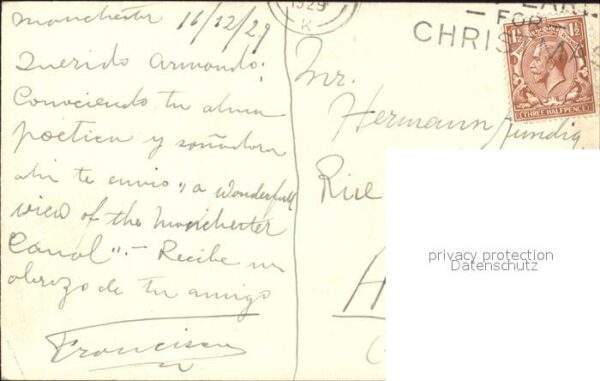 Manchester 16/12/29
Querido Armando:
Conociendo tu alma
poética y soñadora
ahi te envio „a wonderfull
view of the Manchester
Canal".- Recibe un
abrazo de tu amigo
Francisco
1929
K
- FOR -
CHRISTMAS
1½ 1½
THREE HALFPENCE
Mr.
Hermann Jundig
Rue
H
privacy protection
Datenschutz